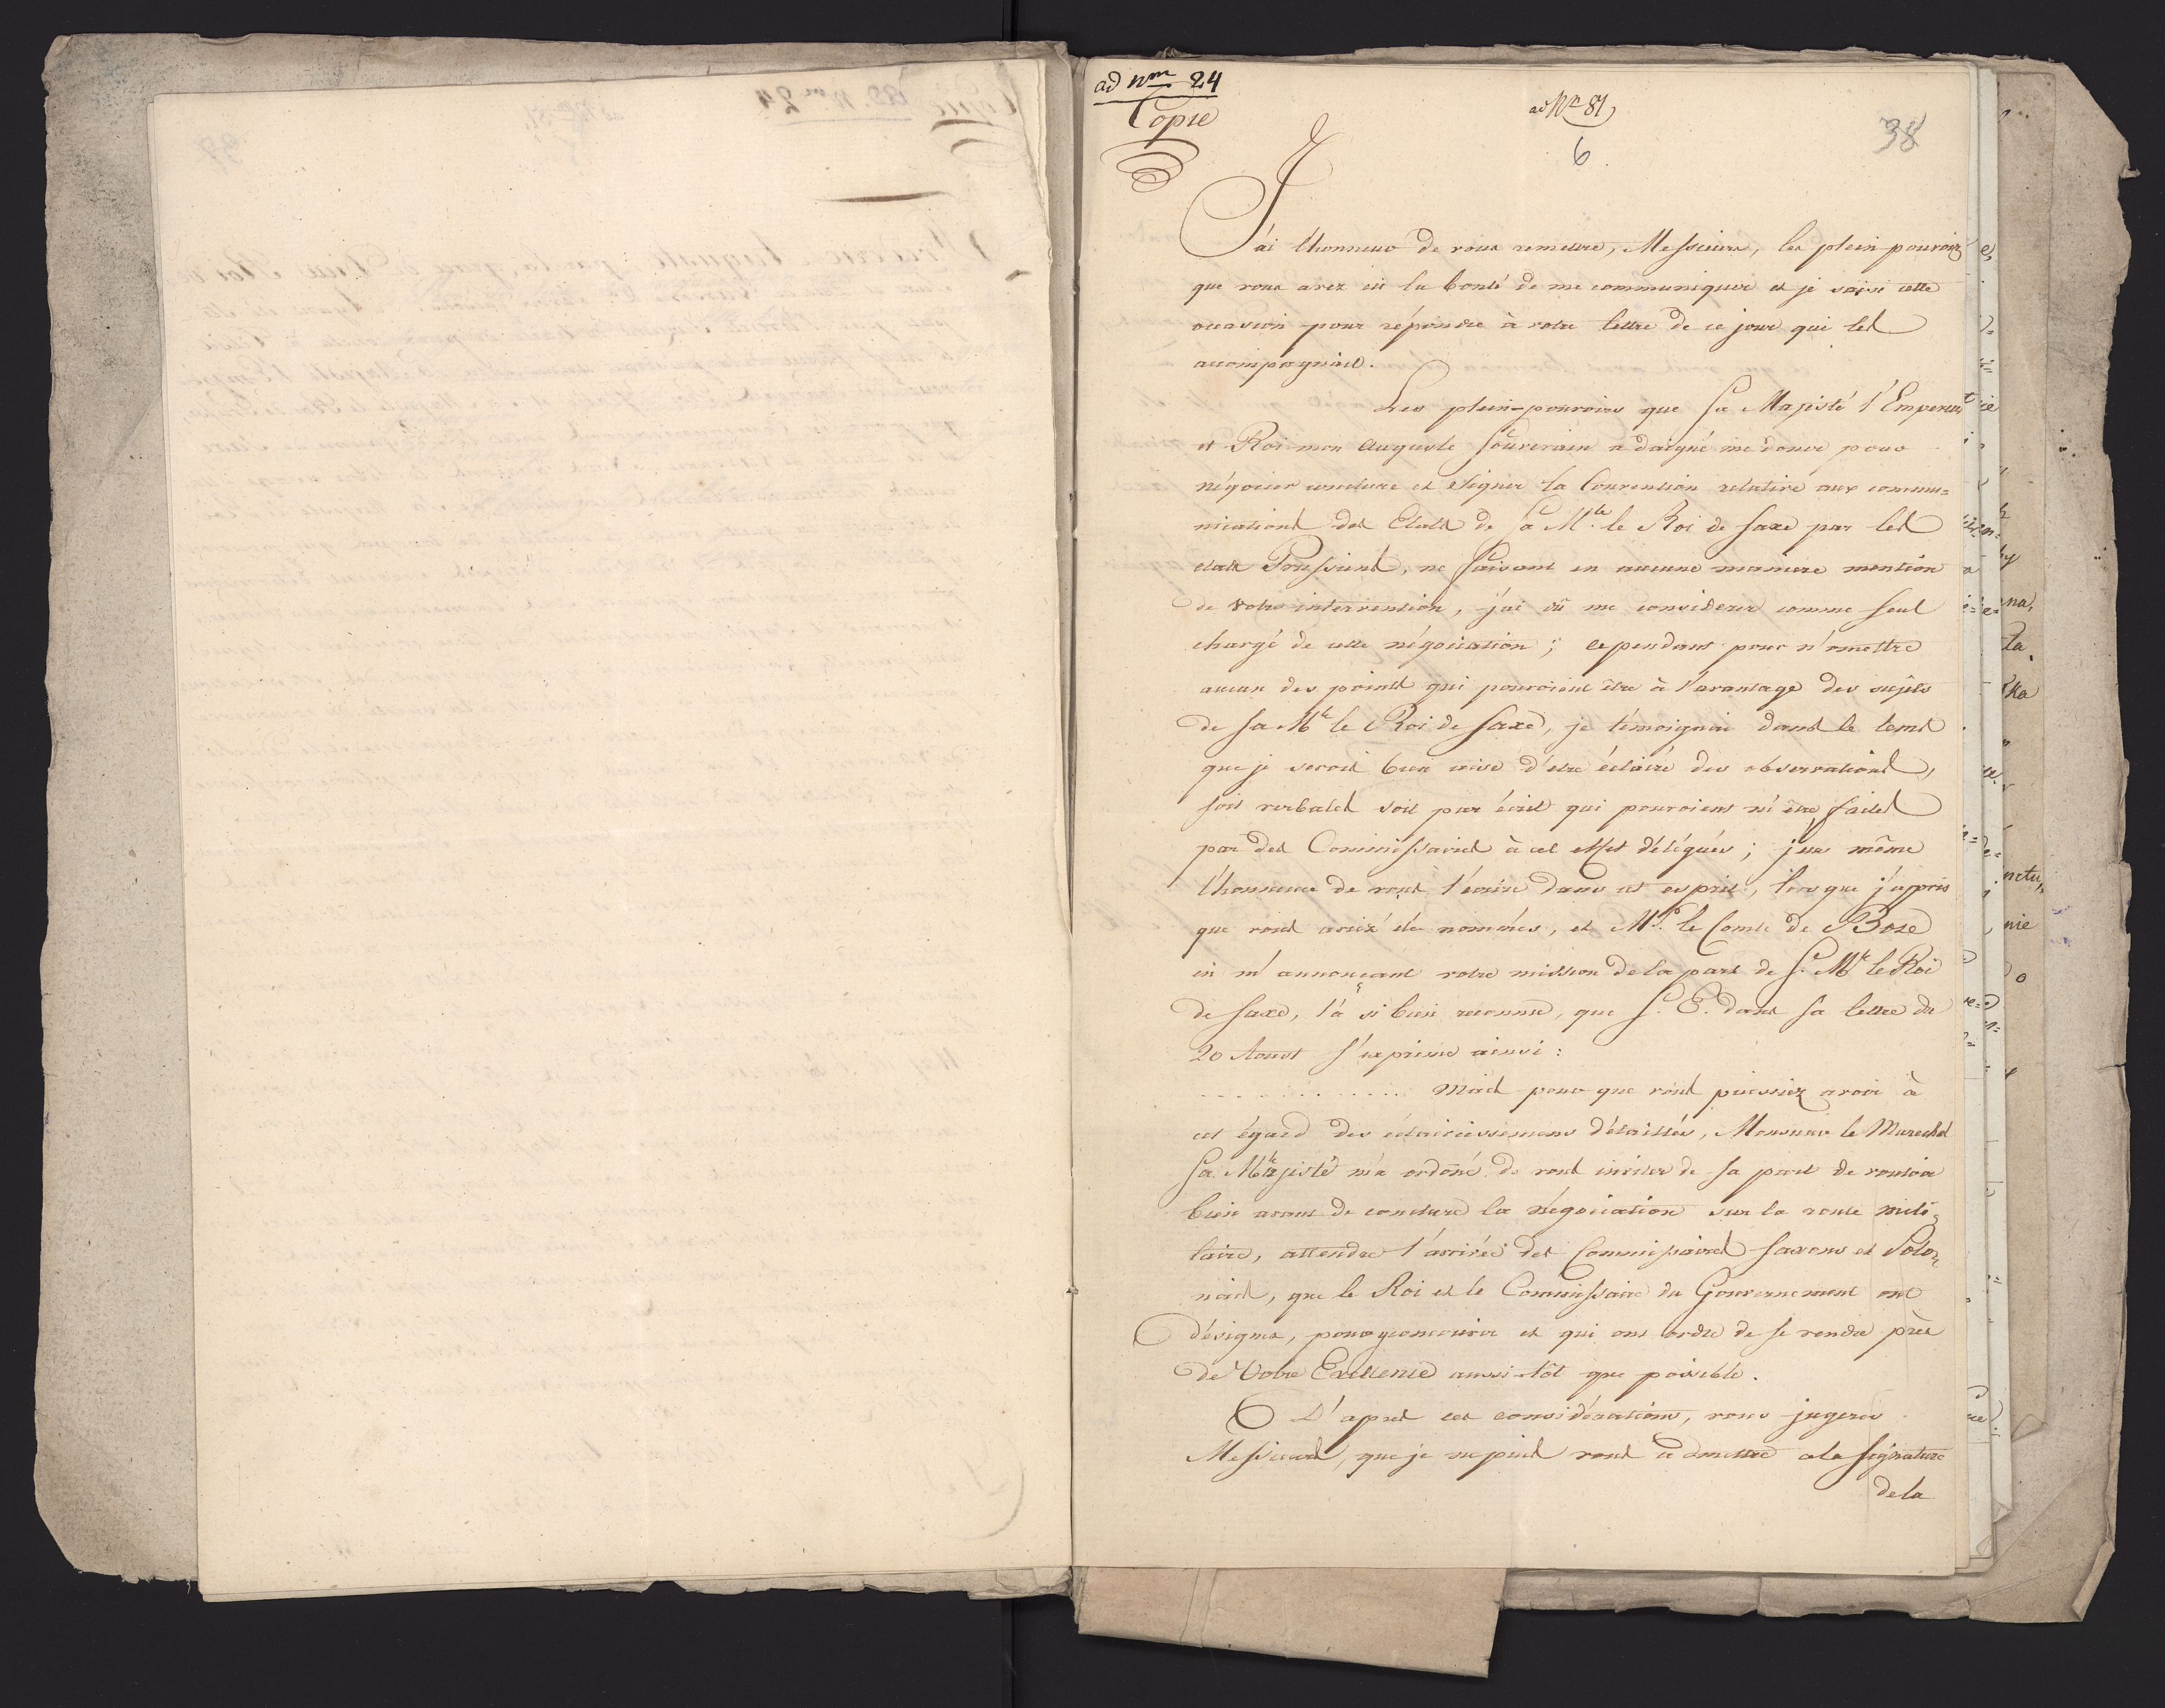 ad Nm 24
Copie
ad Nm 81
6.
38
J'ai l'honneur de vous remettre, Messieurs, les plein-pouvoirs
que vous avez eû la bonté de me communiquer et je saisi cette
occasion pour répondre à votre lettre de ce jour qui les
accompagnait.
Les plein-pouvoirs que Sa Majesté l'Empereur
et Roi mon auguste Souverain a daigné me doner pour
négocier conclure et signer la Convention relative aux commu=
nications des Etats de Sa Mté le Roi de Saxe par les
etats Prussiens, ne faisant en aucune maniere mention
de votre intervention, j'ai dû me considerer comme seul
chargé de cette négociation; cependant pour n'omettre
aucun des points qui pouroient être à l'avantage des sujets
de Sa Mté le Roi de Saxe, je témoignai dans le tems
que je serois bien aise d'etre éclairé des observations,
soit verbales soit par écrit qui pouroient m'être faites
par des Commissaires à cet effet délégués; j'eus même
l'honneur de vous l'écrire dans cet esprit, lorsque j'appris
que vous aviez été nommés, et Mr. le Comte de Bose
en m'annonçant votre mission de la part de S. Mté le Roi
de Saxe, l'a si bien reconnu, que S. E. dans sa lettre du
20 Aoust s'exprime ainsi:
. . . . . . . . . . . . . Mais pour que vous puissiez avoir à
cet égard des éclaircissemens détaillés, Monsieur le Marechal
Sa Majesté m'a ordoné de vous inviter de sa part de vouloir
bien avant de conclure la négociation sur la route mili=
taire, attendre l'arrivée des Commissaires saxons et Polo=
nais, que le Roi et le Commissaire du Gouvernement ont
désignés, pour y concourir et qui ont ordre de se rendre près
de Votre Excellence aussi-tôt que possible.
D'apres ces considérations, vous jugerez
Messieurs, que je ne puis vous admettre a la signature
de la